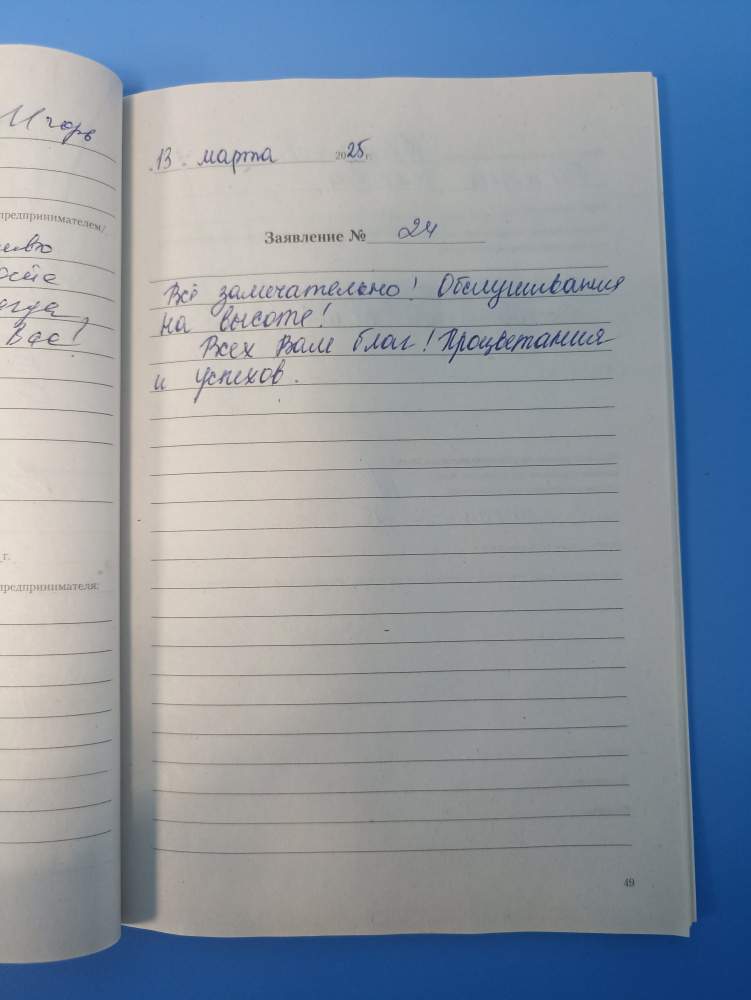 Игорь
предпринимателем/
Вас!
г.
предпринимателя:
13 марта 2025 г.
Заявление № 24
Всё замечательно! Обслуживание
на высоте!
Всех Вам благ! Процветания
и успехов.
49